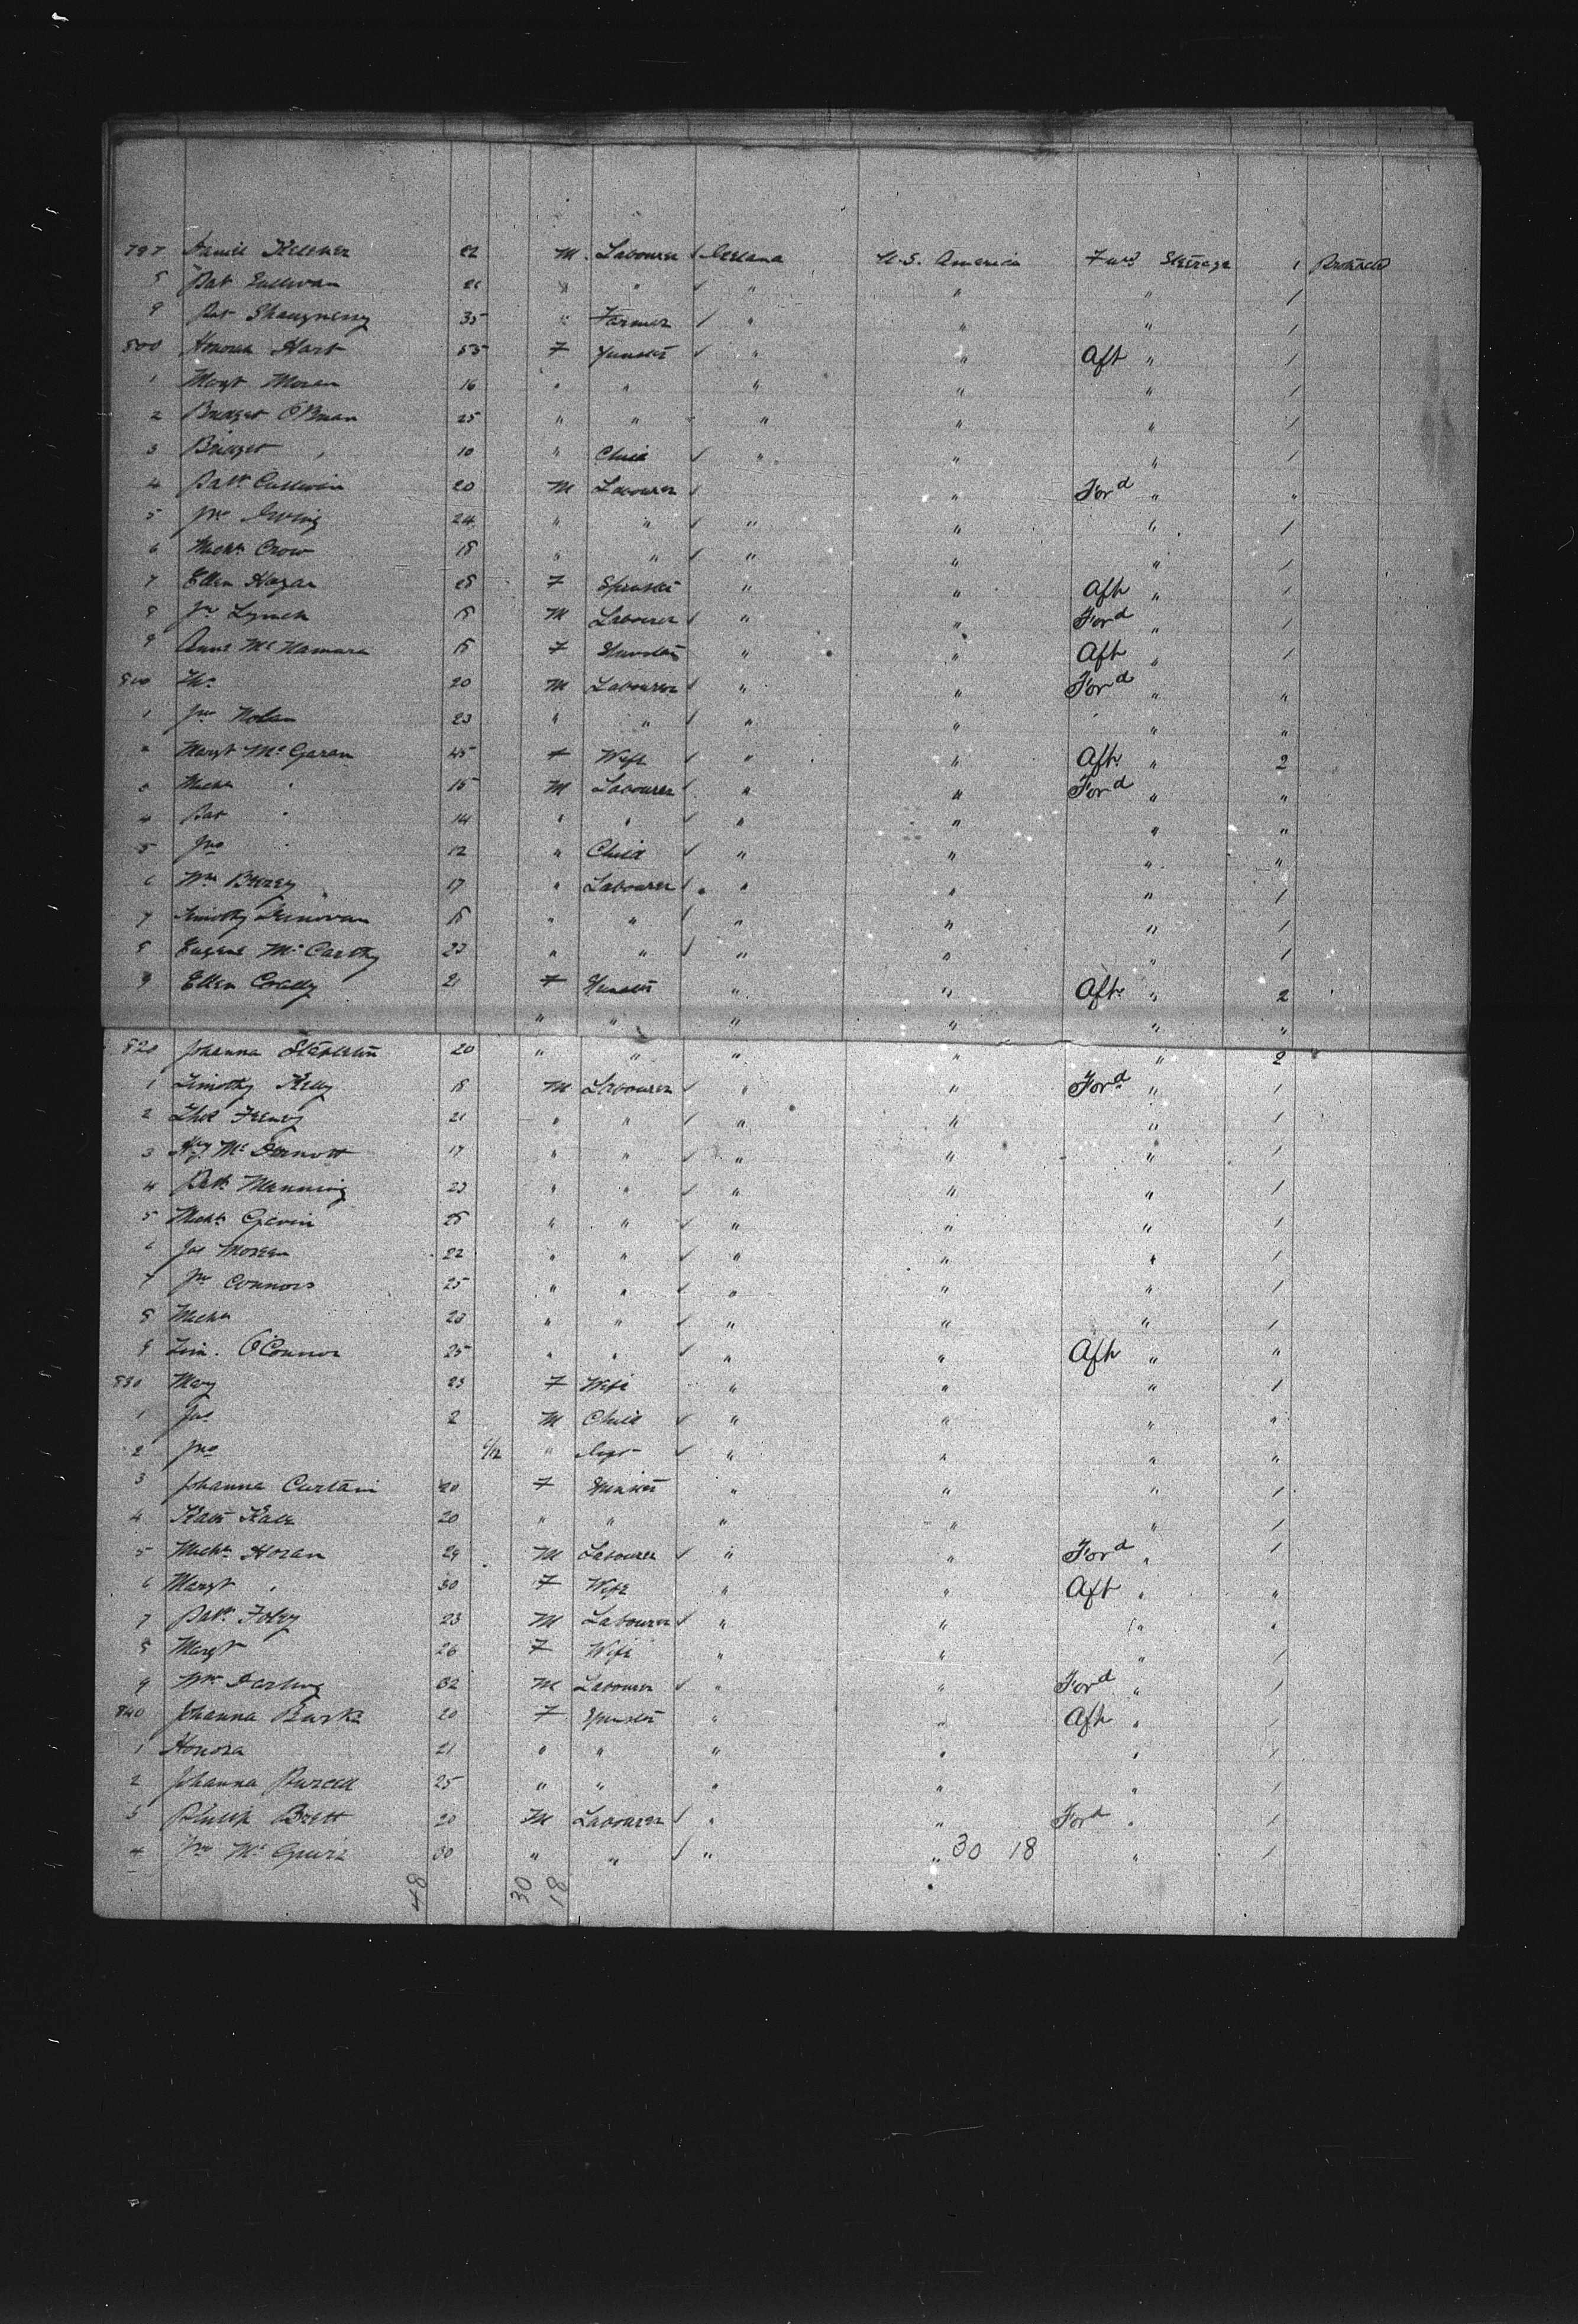 797 Daniel Kelleher 22 M. Labourer ✓ Ireland U.S. America Fwd Steerage 1 Protracted
8 Pat Sullivan 21 " " ✓ " " " 1
9 Pat Shaugnessy 35 " Farmer ✓ " " " 1
800 Honora Hart 55 F Spinster ✓ " " Aft " 1
1 Margt Moran 16 " " " " " 1
2 Bridget O'Brien 25 " " " " " 1
3 Bridget " 10 " Child ✓ " " " 1
4 Patk Cullinan 20 M Labourer ✓ " Ford " "
5 Jno 24 " " ✓ " " " 1
6 Michl Crow 18 " " ✓ " " " 1
7 Ellen Hogan 25 F Spinster " " Aft " 1
8 Jno Lynch 18 M Labourer ✓ " " Ford " 1
9 Anne McNamara 18 F Spinster " " Aft " 1
810 20 M Labourer ✓ " " Ford " "
1 Jno Nolan 23 " " ✓ " " " "
2 Margt McGaran 45 F Wife ✓ " " Aft " 2
3 Michl " 15 M Labourer ✓ " " Ford " "
4 Pat " 14 " " ✓ " " " "
5 Jno " 12 " Child ✓ " " " "
6 Wm 17 " Labourer ✓ " " " 1
7 Timothy Donovan 18 " " ✓ " " " 1
8 Eugene McCarthy 23 " " ✓ " " " 1
9 Ellen 21 F Spinster " " Aft " 2
" " " " " "
820 Johanna Stapleton 20 " " " " " 2
1 Timothy Kelly 18 M Labourer ✓ " " Ford " 1
2 Thos 21 " " ✓ " " " 1
3 Hy McDermott 17 " " ✓ " " " 1
4 Patk Manning 23 " " ✓ " " " 1
5 Michl Gavin 25 " " ✓ " " " 1
6 Jas Moran 22 " " ✓ " " " 1
7 Jno Connors 25 " " ✓ " " " 1
8 Michl 23 " " ✓ " " " 1
9 Tim. O'Connor 25 " " ✓ " " Aft " "
830 Mary 23 F Wife " " " 1
1 Jas 2 M Child ✓ " " " "
2 Jno " Inft ✓ " " " "
3 Johanna Curtain 20 F Spinster " " " 1
4 Kate 20 " " " " " 1
5 Michl Horan 29 M Labourer ✓ " " Ford " 1
6 Margt " 30 F Wife " " Aft " "
7 Patk Foley 23 M Labourer ✓ " " " "
8 Margt 26 F Wife " " " 1
9 Wm Darling 32 M Labourer ✓ " " Ford " 1
840 Johanna Burke 20 F Spinster " " Aft " 1
1 Honora 21 " " " " " 1
2 Johanna Purcell 25 " " " " " 1
3 Philip Brett 20 M Labourer ✓ " " Ford " 1
4 30 " " ✓ " " 30 18 " 1
48 30 18